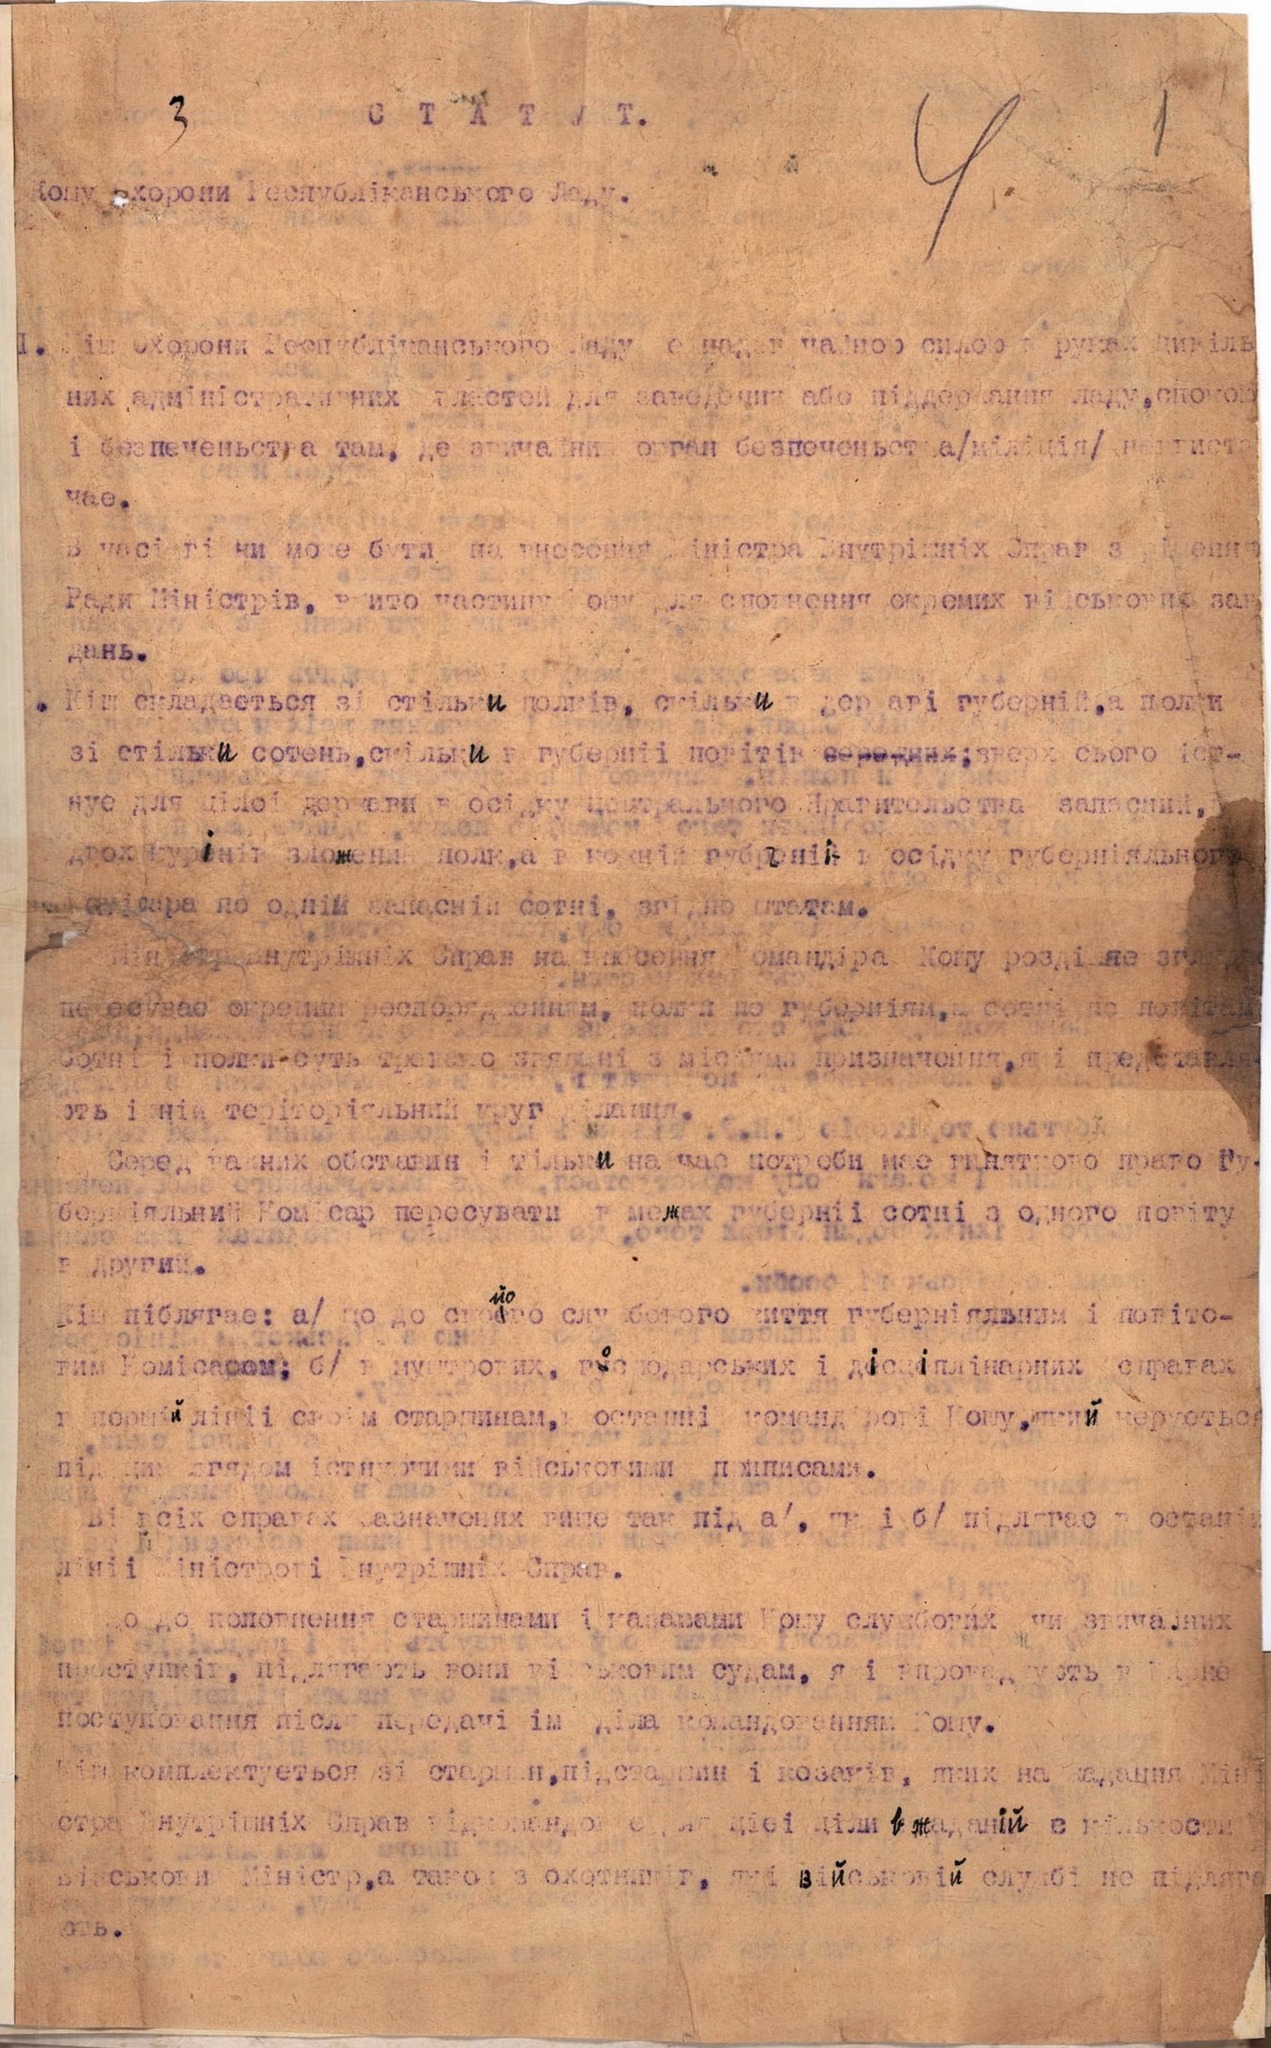 3
С Т А Т У Т.
4
1
Кошу Охорони Республіканського Ладу.
I. Кіш Охорони Республіканського Ладу є надзвичайною силою в руках цивіль
них адміністративних властей для заведення або піддержання ладу, спокою
і безпеченьства там, де звичайний орган безпеченьства/міліція/ невиста
чає.
В часі війни може бути на внесення Міністра Внутрішніх Справ з рішення
Ради Міністрів, вжито частину Кошу для сповнення окремих військових зав
дань.
. Кіш складається зі стільки полків, скільки в державі губерній, а полки
зі стільки сотень, скільки в губернії повітів середних; зверх сього іст-
нує для цілої держави в осідку Центрального Правительства запасний, з
двох курінів зложений полк, а в кожній губернії в осідку губерніяльного
Комісара по одній запасній сотні, згідно штатам.
Міністр Внутрішніх Справ на внесення Командіра Кошу розділяє зглядно
пересуває окремим роспорядженням, полки по губерніям, а сотні по повітам
Сотні і полки суть тривко звязані з місцями призначення, які представля-
ють їхній теріторіяльний круг ділання.
Серед важних обставин і тільки на час потреби має виняткове право Гу-
берніяльний Комісар пересувати в межах губернії сотні з одного повіту
в другий.
Кіш піблягає: а/ що до свойого службового життя губерніяльним і повіто-
вим Комісаром; б/ в муштрових, господарських і дісціплінарних справах
в першій лінії своїм старшинам, в останній командірові Кошу, який керується
під цим зглядом істнуючими військовими приписами.
Ві всіх справах зазначених вище так під а/, як і б/ підлягає в останній
лінії Міністрові Внутрішніх Справ.
Що до поповнення старшинами і козаками Кошу службових чи звичайних
проступків, підлягають вони військовим судам, які впроваджують в карне
поступовання після передачі їм діла командованням Кошу.
. Кіш комплектується зі старшин, підстаршин і козаків, яких на жадання Міні
стра Внутрішніх Справ відкомандовує для цієї ціли в жаданій є кількости
Військовий Міністр, а також з охотників, які військовій службі не підляга
ють.